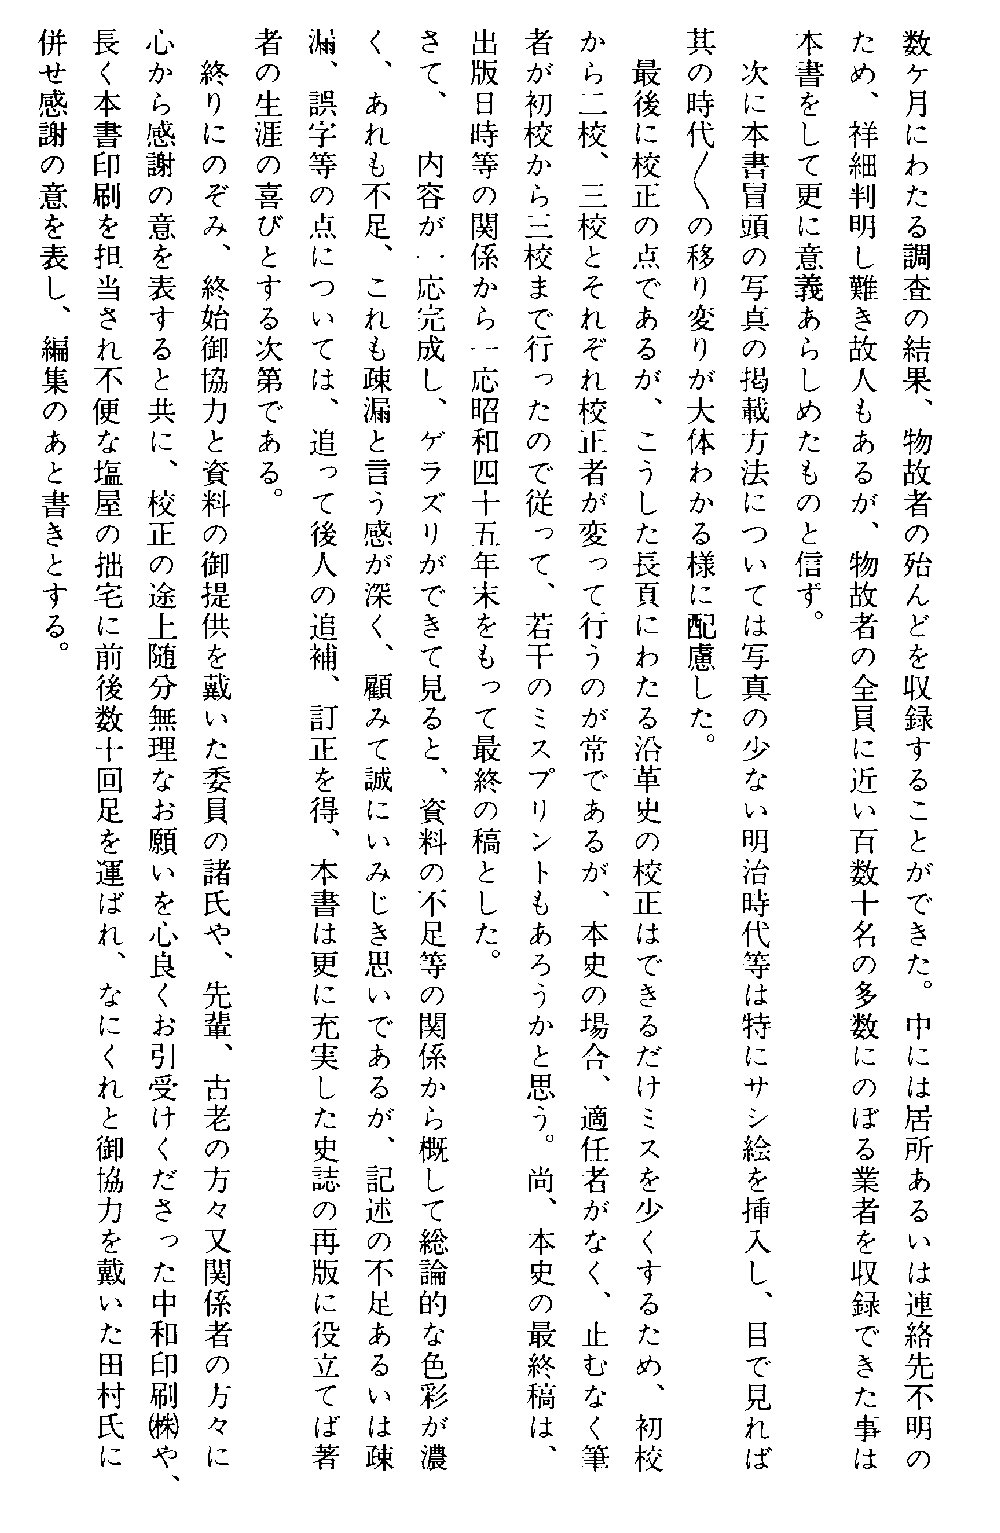 数ヶ月にわたる調査の結果、物故者の殆んどを収録することができた。中には居所あるいは連絡先不明の
ため、祥細判明し難き故人もあるが、物故者の全員に近い百数十名の多数にのぼる業者を収録できた事は
本書をして更に意義あらしめたものと信ず。
次に本書冒頭の写真の掲載方法については写真の少ない明治時代等は特にサシ絵を挿入し、目で見れば
其の時代〳〵の移り変りが大体わかる様に配慮した。
最後に校正の点であるが、こうした長頁にわたる沿革史の校正はできるだけミスを少くするため、初校
から二校、三校とそれぞれ校正者が変って行うのが常であるが、本史の場合、適任者がなく、止むなく筆
者が初校から三校まで行ったので従って、若干のミスプリントもあろうかと思う。尚、本史の最終稿は、
出版日時等の関係から一応昭和四十五年末をもって最終の稿とした。
さて、内容が一応完成し、ゲラズリができて見ると、資料の不足等の関係から概して総論的な色彩が濃
く、あれも不足、これも疎漏と言う感が深く、顧みて誠にいみじき思いであるが、記述の不足あるいは疎
漏、誤字等の点については、追って後人の追補、訂正を得、本書は更に充実した史誌の再版に役立てば著
者の生涯の喜びとする次第である。
終りにのぞみ、終始御協力と資料の御提供を戴いた委員の諸氏や、先輩、古老の方々又関係者の方々に
心から感謝の意を表すると共に、校正の途上随分無理なお願いを心良くお引受けくださった中和印刷㈱や、
長く本書印刷を担当され不便な塩屋の拙宅に前後数十回足を運ばれ、なにくれと御協力を戴いた田村氏に
併せ感謝の意を表し、編集のあと書きとする。